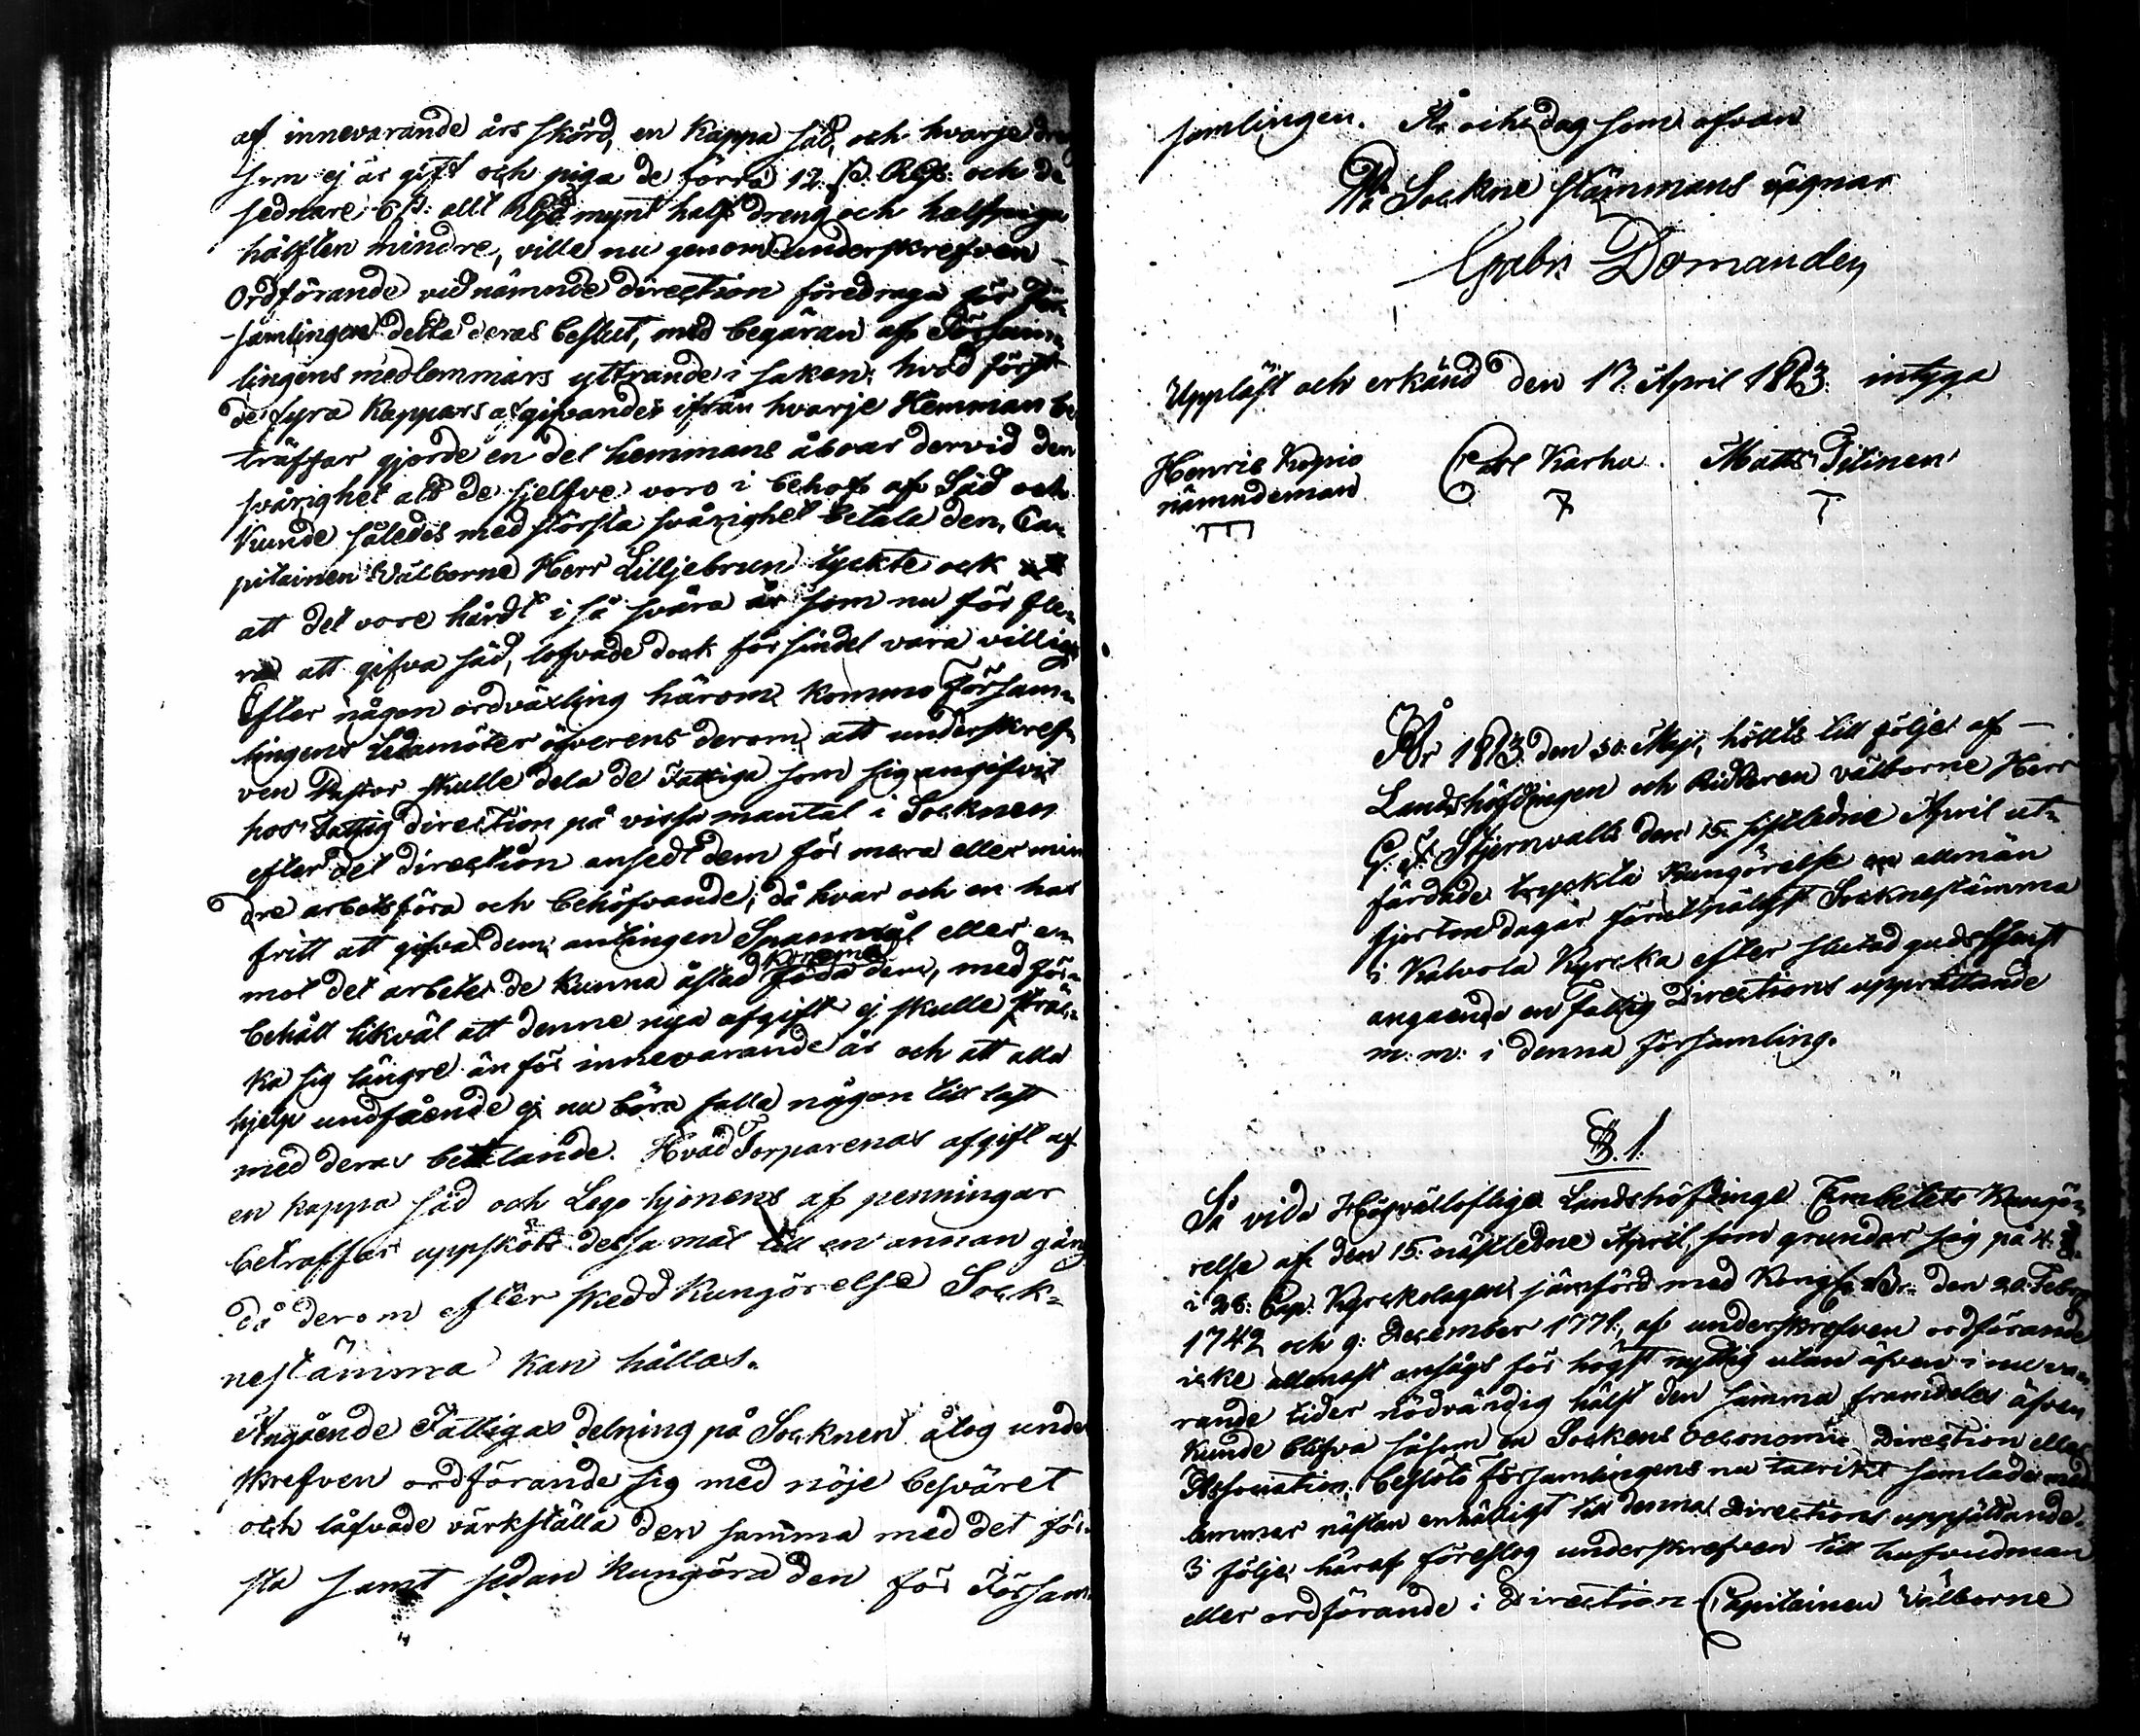 af innevarande års skörd, en Kappa säd, och hvarje dreng
som ej är gift och piga de förra 12 ß. Rgs. och de
sednare 6 ß. allt Rgs mynt half dreng och halfpiga
hälften mindre, ville nu genom underskrefven
Ordförande vid nämnde direction föredraga för För-
samlingen detta deras beslut, med begäran af Försam-
lingens medlemmars yttrande i saken; hvad först
de fyra Kappars afgifvandet ifrån hvarje Hemman be
träffar gjorde en del hemmans åboar dervid den
svårighet att de sjelfve voro i behof af Säd och
Kunde således med största svårighet betala den, Ca-
pitainen Välborne Herr Lilljebrun tyckte ock
att det vore hårdt i så svåra år som nu för fle-
ra att gifva säd, lofvade dock för sin del vara villig
Efter någon ordväxling härom kommo Försam-
lingens Ledamöter öfverens derom, att underskref-
ven Pastor skulle dela de Fattiga som sig angifvit
hos Fattig direction på vissa mantal i Socknen
efter det direction ansedt dem för mera eller min
dre arbetsföra och behöfvande; då hvar och en har
fritt att gifva dem antingen Spannmål eller e-
mot det arbete de Kunna åstad komma föda dem, med för-
behåll likväl att denne nya afgift ej skulle sträc-
ka sig längre än för innevarande år och att alla
hjelp undfående ej nu böra falla någon till last
med deras bettlande. Hvad Torparenas afgift af
en kappa säd och Lego hjonens af penningar
betraffar uppsköts dessa mål till en annan gång
då derom efter skedd Kungörelse Sock-
nestämma kan hållas.
Angående Fattigas delning på Socknen åtog under
skrefven ordförande sig med nöje besväret
och låfvade värkställa den samma med det för-
sta samt sedan kungöra den för Försam-
samlingen. År och dag som ofvan
På Sockne stämmans vägnar
Gabr. Domander
Uppläst och erkänd den 17. April 1813. intyga
Henric Kopio Carl Karhu. Matts Titinen
nämndeman
År 1813 den 30. Maji, hölts till följe af
Landshöfdingen och Riddaren välborne Herr
G. F. Stjernvalls den 15. sistledne April ut-
färdade tryckta Kungörelse en allmän
fjorton dagar förut pålyst Socknestämma
i Kalvola Kyrcka efter slutad gudstjenst
angående en Fattig Directions upprättande
m. m. i denna församling.
§. 1.
Så vida Högvällofliga Landshöfdinge Embetets Kungö-
relse af den 15. nästledne April, som grundar sig på 4. §.
i 28. Cap. Kyrckolagen jämförd med Kongl. Br. den 20. Febr.
1742 och 9. December 1771, af underskrefven ordförande
icke allenast ansågs för högst nyttig utan äfven i nu va-
rande tider nödvändig hälst den samma framdeles äfven
Kunde blifva såsom en Sockens Oeconomie Direction eller
Association; beslöts församlingens nu talrikt samlade med
lemmar nästan enhälligt till denna Directions uppsättande.
I följe häraf föreslog underskrefven till hufvudman
eller ordförande i Direction Capitainen Välborne